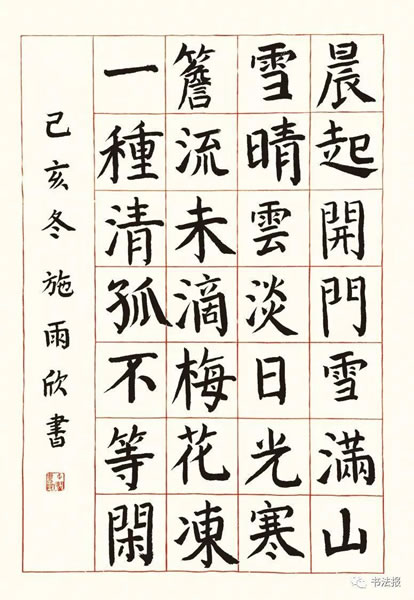 晨起開門雪滿山
雪晴雲淡日光寒
簷流未滴梅花凍
一種清孤不等閑
己亥冬施雨欣書
书法报